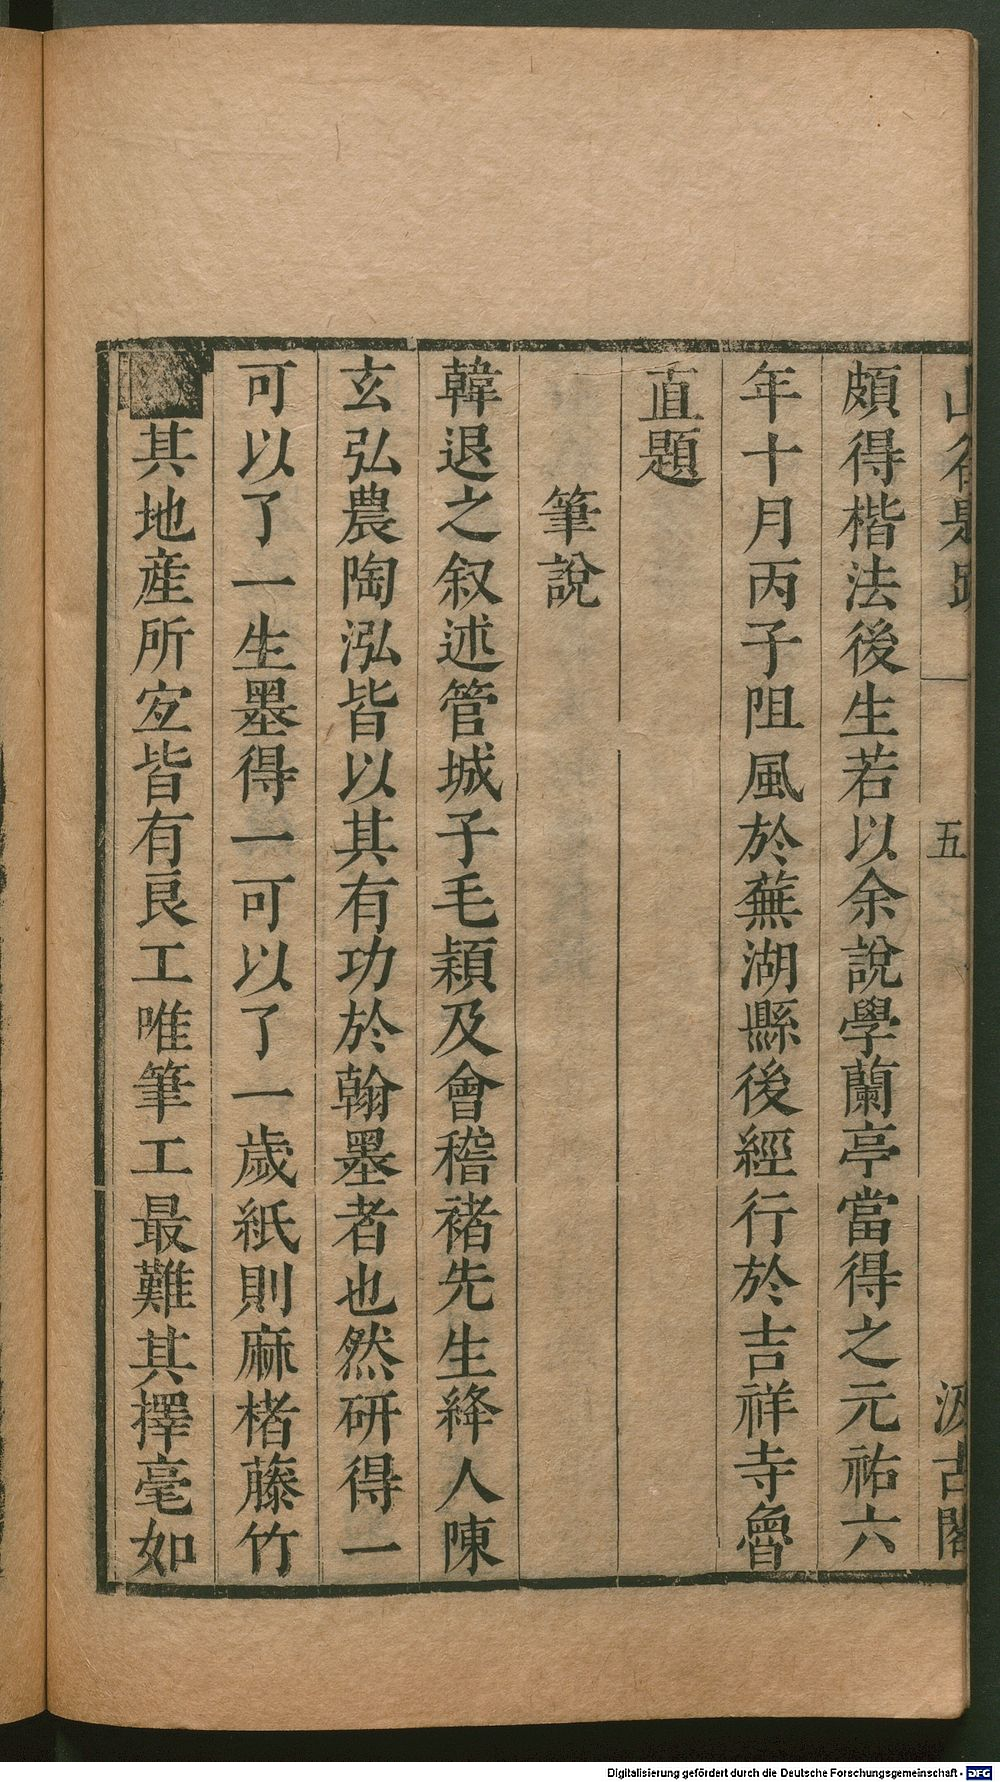 山谷題跋 五 汲古閣
頗得楷法後生若以余說學蘭亭當得之元祐六
年十月丙子阻風於蕪湖縣後經行於吉祥寺魯
直題
筆說
韓退之叙述管城子毛穎及會稽褚先生絳人陳
玄弘農陶泓皆以其有功於翰墨者也然研得一
可以了一生墨得一可以了一歲紙則麻楮藤竹
其地産所宐皆有良工唯筆工最難其擇毫如
Digitalisierung gefördert durch die Deutsche Forschungsgemeinschaft - DFG